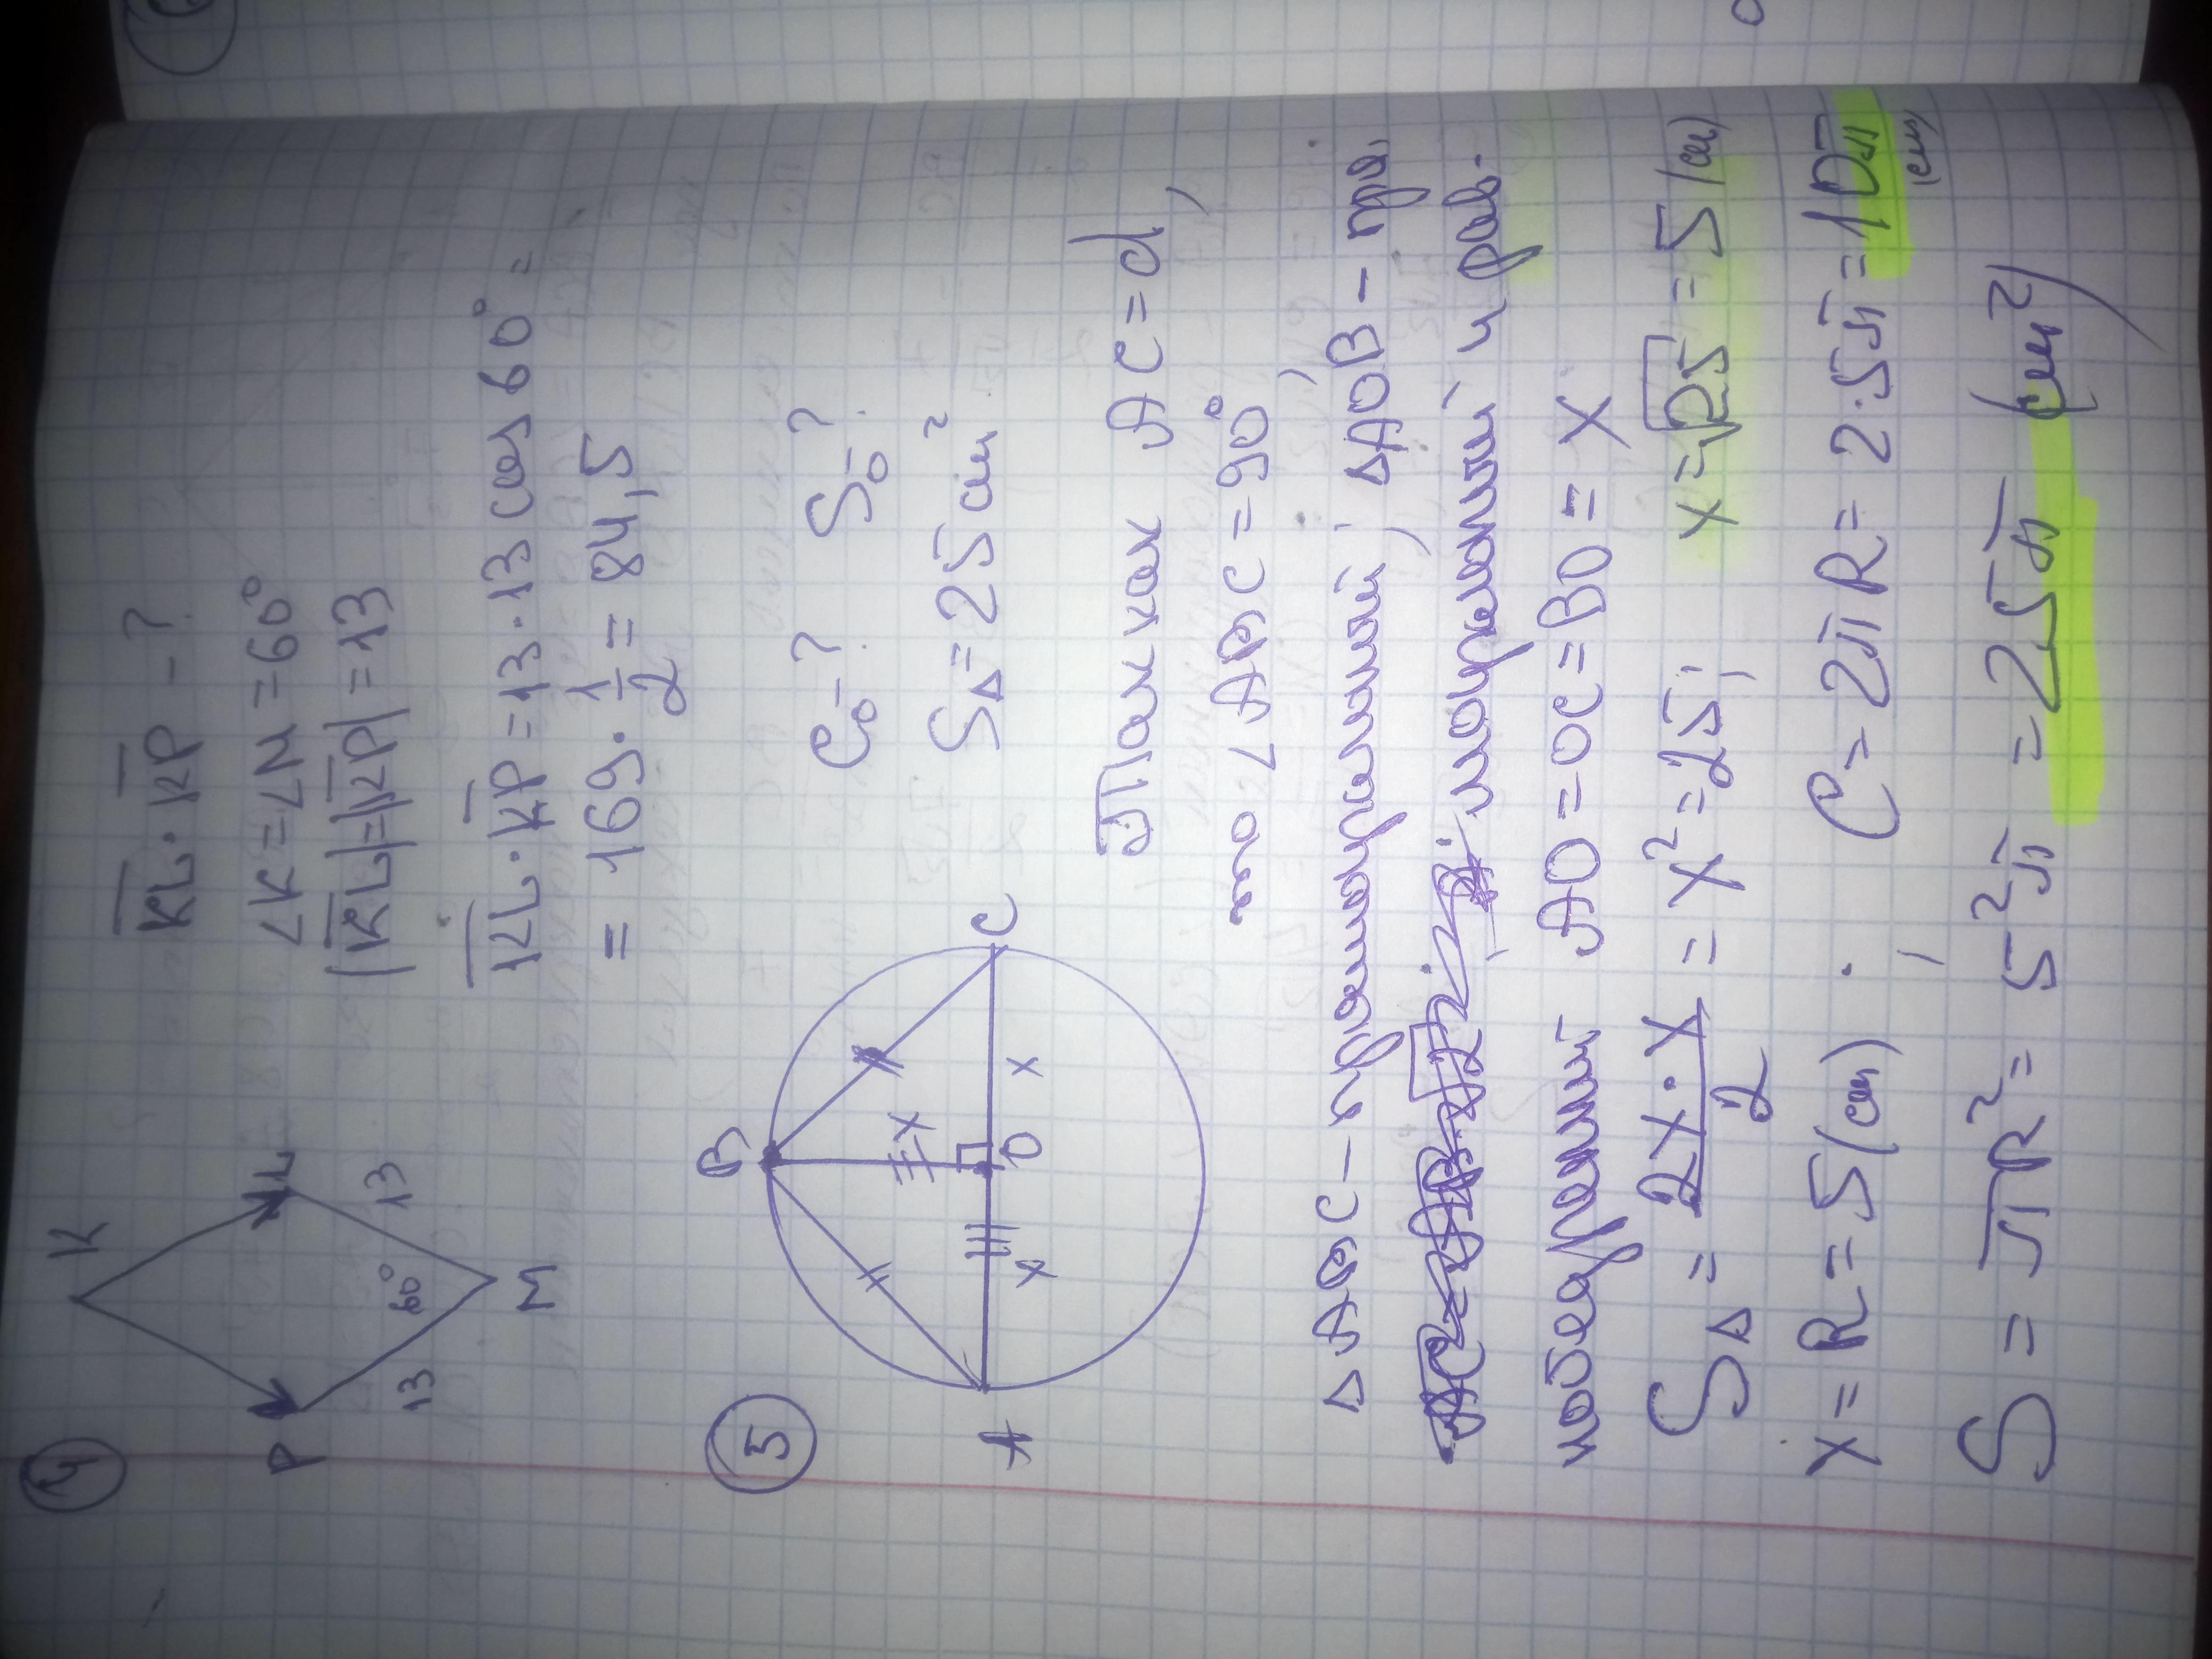 4
K
P
L
13
60°
13
M
K̅L̅ · K̅P̅ - ?
∠K = ∠M = 60°
|K̅L̅| = |K̅P̅| = 13
K̅L̅ · K̅P̅ = 13 · 13 cos 60° =
= 169 · 1/2 = 84,5
5
B
A
O
C
x
x
x
C₀ - ? S₀ - ?
S△ = 25 см²
Так как AC = d,
то ∠ABC = 90°,
△ABC - прямоугольный, △AOB - пря
и рав-
нобедренный AO = OC = BO = X
S△ = 2X · X / 2 = X² = 25; x = √25 = 5 (см)
x = R = 5 (см); C = 2πR = 2 · 5π = 10π (см)
S = πR² = 5²π = 25π (см²)